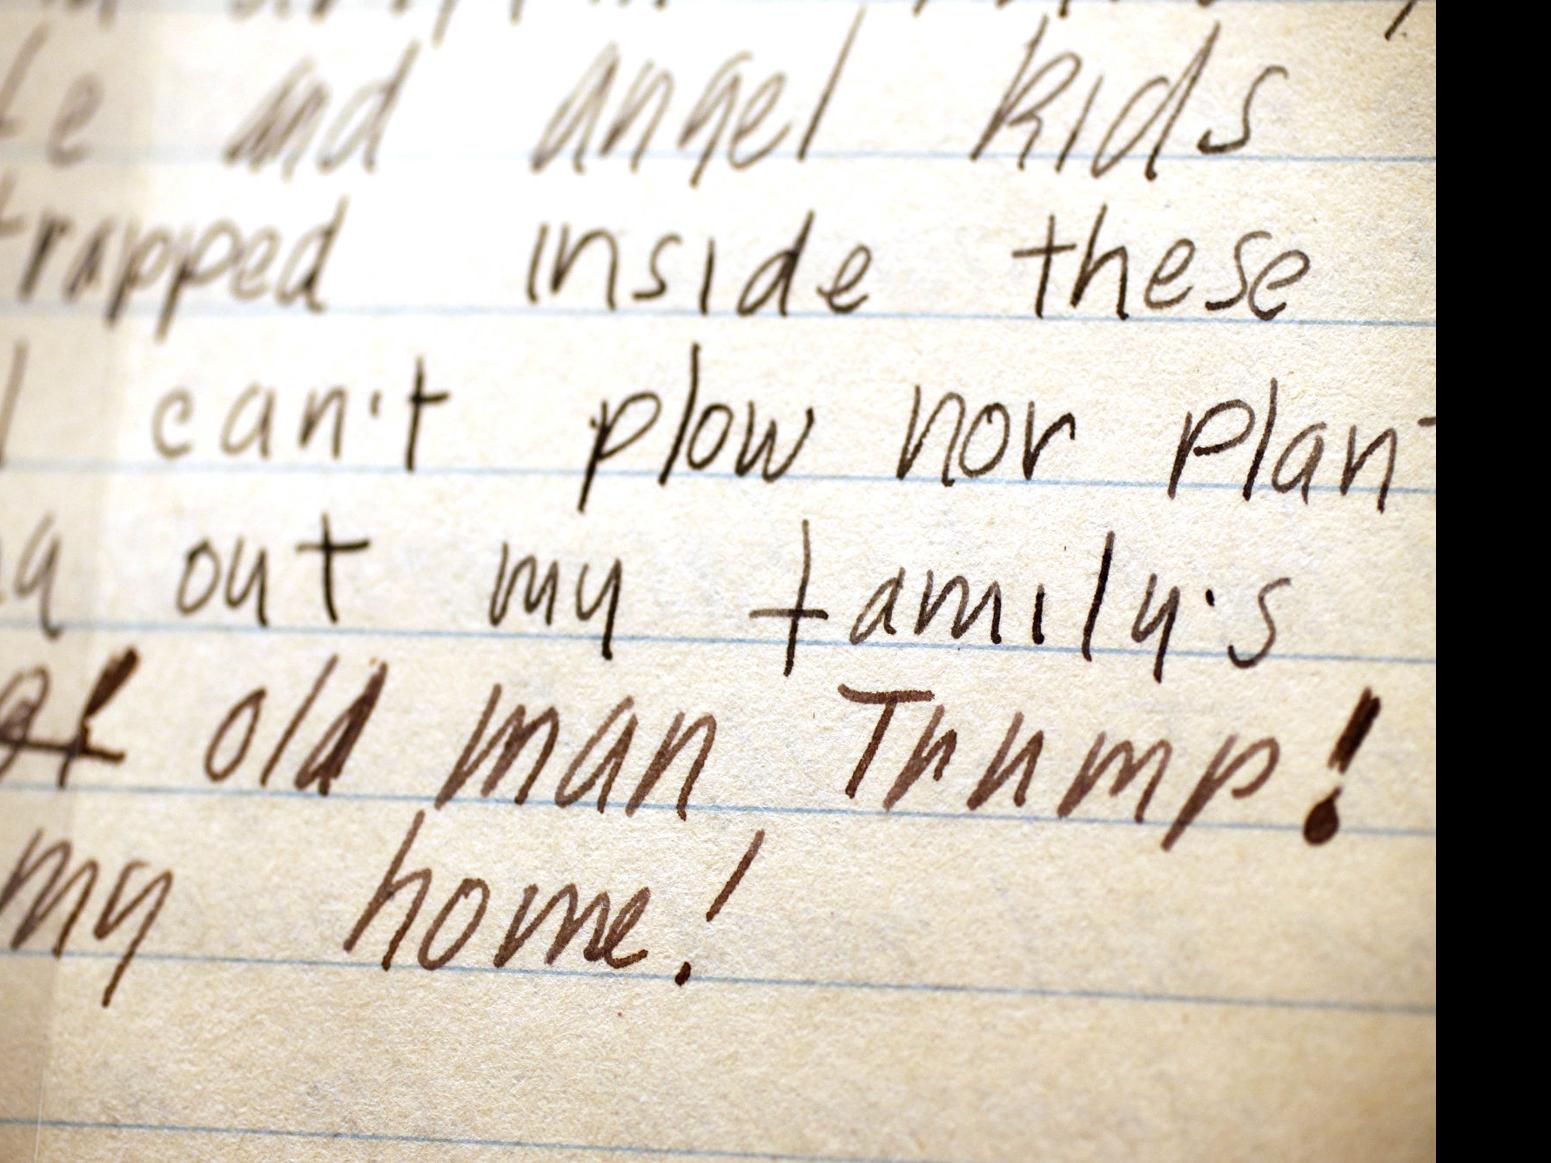 and angel kids
trapped inside these
can't plow nor plant
out my family's
old man Trump!
my home!